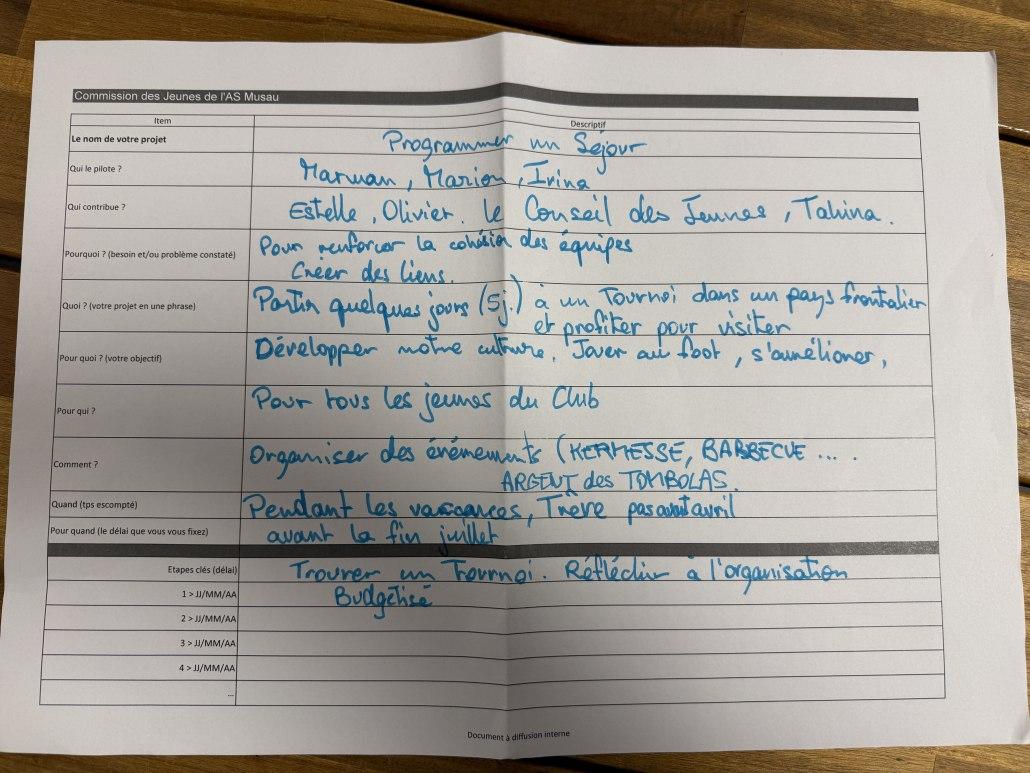 Commission des Jeunes de l'AS Musau
Item Descriptif
Le nom de votre projet Programmer un Séjour
Qui le pilote ? Marwan, Marion, Irina
Qui contribue ? Estelle, Olivier. le Conseil des Jeunes, Tahina.
Pourquoi ? (besoin et/ou problème constaté) Pour renforcer la cohésion des équipes
Créer des liens.
Quoi ? (votre projet en une phrase) Partir quelques jours (5j.) à un Tournoi dans un pays frontalier
et profiter pour visiter
Pour quoi ? (votre objectif) Développer notre culture. Jouer au foot, s'améliorer,
Pour qui ? Pour tous les jeunes du Club
Comment ? Organiser des événements (KERMESSE, BARBECUE ... .
ARGENT des TOMBOLAS.
Quand (tps escompté) Pendant les vacances, Trève pas avant avril
Pour quand (le délai que vous vous fixez) avant la fin juillet
Etapes clés (délai) Trouver un Tournoi. Réfléchir à l'organisation
1 > JJ/MM/AA Budgétisé
2 > JJ/MM/AA
3 > JJ/MM/AA
4 > JJ/MM/AA
...
Document à diffusion interne